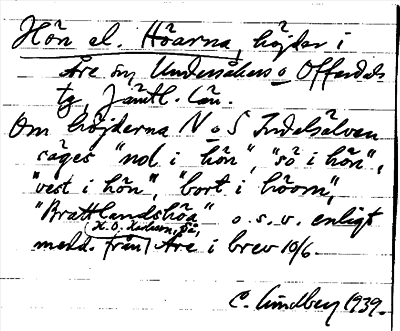 Hön el. Höarna, höjder i
Åre sn, Undersåkers o Offerdals
tg, Jämtl. län.
Om höjderna N o S Indalsälven
säges "nol i hön", "sö i hön",
"vest i hön", "bort i höom",
"Brattlandshöa" o.s.v. enligt
medd. från Åre i brev 10/6.
C. Lindberg 1939.